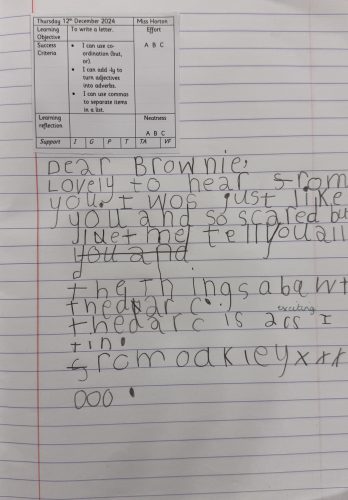 Thursday 12th December 2024 Miss Horton
Learning Objective To write a letter. Effort
Success Criteria • I can use co-ordination (but, or). A B C
• I can add -ly to turn adjectives into adverbs.
• I can use commas to separate items in a list.
Learning reflection Neatness
A B C
Support I G P T TA VF
Dear Brownie,
Lovely to hear srom
you. I wos just like
you and so scared but
let me tell you all
you and
the things abawt
thedarc.
thedarc is as exciting I
tin.
from oakley xxx
ooo